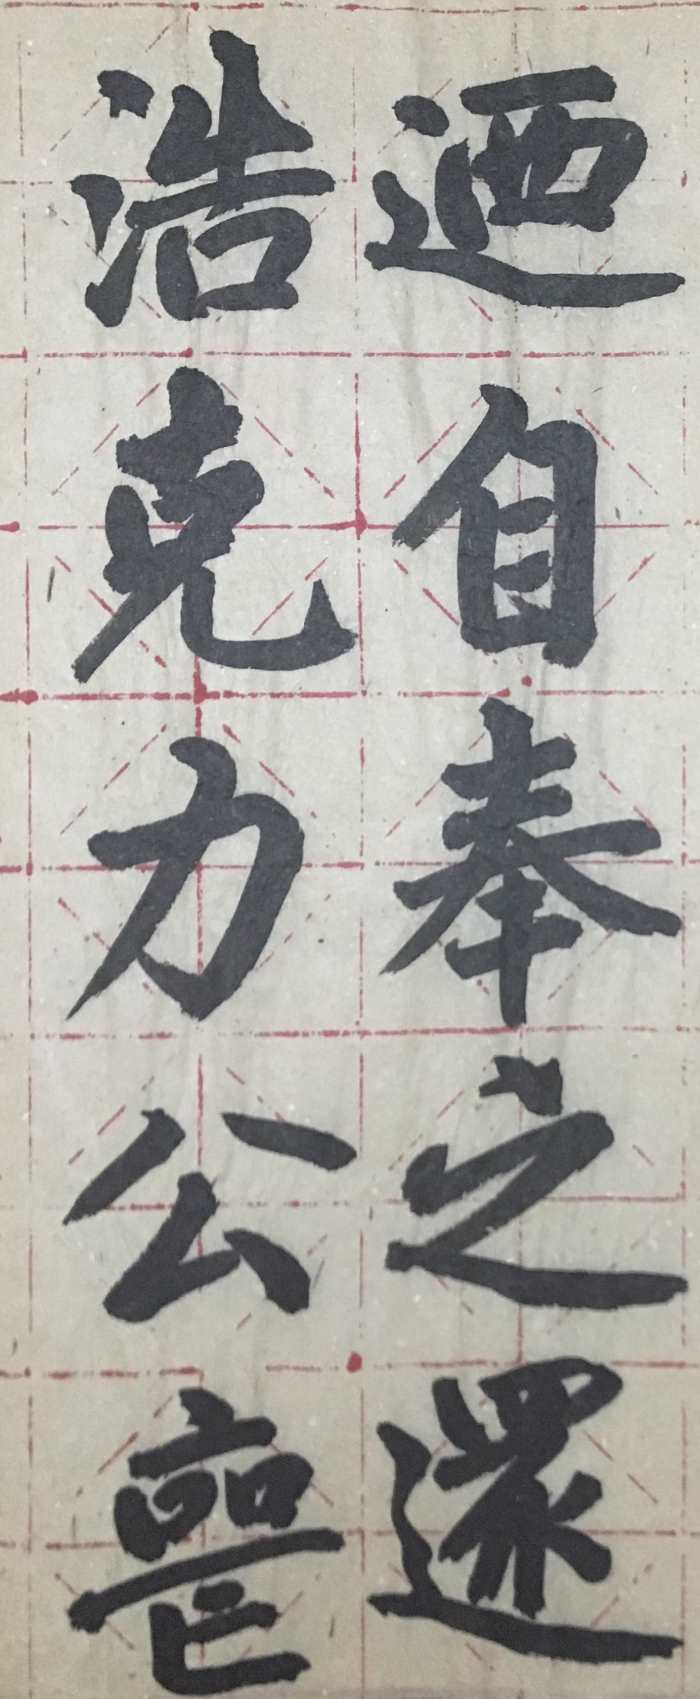 迺自奉之還
浩克力公喪